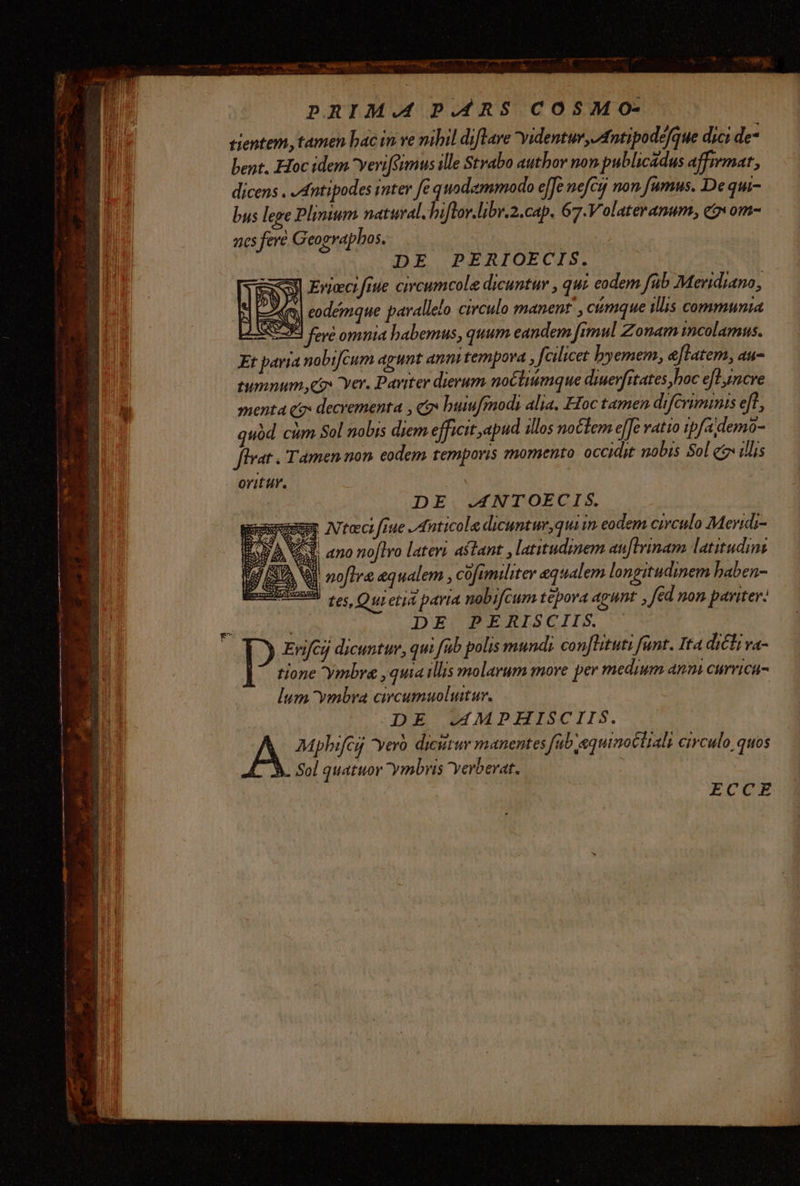 PRIMA PARS COSMO-
tientem, tamen hac in re nihil distare videntur, Antipodésque dici de-
bent. Hoc idem verissimus ille Strabo author non publicãdus affirmat,
dicens. Antipodes inter se quodammodo esse nescij non sumus. De qui-
bus lege Plinium natural. histor. libr. 2. cap. 67. Volateranum, & om-
nes ferè Geographos.
DE PERIOECIS.
PErioeci siue circumcolæ dicuntur, qui eodem sub Meridiano,
eodémque parallelo circulo manent, cúmque illis communia
ferè omnia habemus, quum eandem simul Zonam incolamus.
Et paria nobiscum agunt anni tempora, scilicet hyemem, æstatem, au-
tumnum, & ver. Pariter dierum noctiúmque diuersitates, hoc est, incre
menta & decrementa, & huiusmodi alia. Hoc tamen discriminis est,
quòd cùm Sol nobis diem efficit, apud illos noctem esse ratio ipsa demõ-
strat. Tamen non eodem temporis momento occidit nobis Sol & illis
oritur.
DE ANTOECIS.
ANtœci siue Anticolæ dicuntur, qui in eodem circulo Meridi-
ano nostro lateri astant, latitudinem austrinam latitudini
nostræ æqualem, cõsimiliter æqualem longitudinem haben-
tes, Qui etiã paria nobiscum tẽpora agunt, sed non pariter.
DE PERISCIIS.
PErifcij dicuntur, qui sub polis mundi constituti sunt. Ita dicti ra-
tione vmbræ, quia illis molarum more per medium anni curricu-
lum vmbra circumuoluitur.
DE AMPHISCIIS.
AMphiscij verò dicũtur manentes sub æquinoctiali circulo, quos
Sol quatuor vmbris verberat.
ECCE